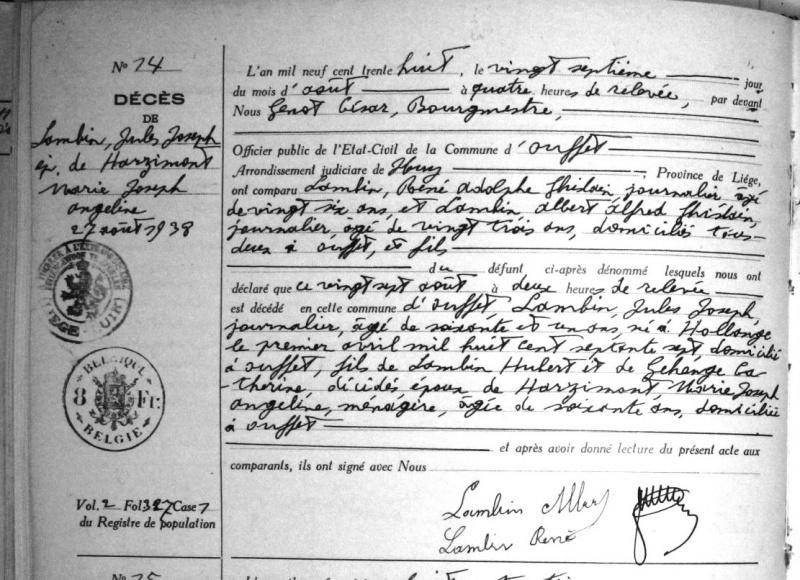 No 14
DÉCÈS
DE
Lambin, Jules Joseph
ép. de Harzimont
Marie Joseph
angeline
27 août 1938
BELGIQUE
8 Fr.
BELGIE
Vol. 2 Fol 327 Case 7
du Registre de population
L'an mil neuf cent trente huit, le vingt septième jour
du mois d'août à quatre heures de relevée, par devant
Nous Genot César, Bourgmestre,
Officier public de l'Etat-Civil de la Commune d'ouffet
Arrondissement judiciare de Huy, Province de Liége,
ont comparu Lambin, René Adolphe Ghislain, journalier, âgé
de vingt six ans, et Lambin Albert Alfred Ghislain,
journalier, âgé de vingt trois ans, domiciliés tous
deux à ouffet, et fils
du défunt ci-après dénommé lesquels nous ont
déclaré que ce vingt sept août à deux heures de relevée
est décédé en cette commune d'ouffet, Lambin, Jules Joseph,
journalier, âgé de soixante et un ans, né à Hollange
le premier avril mil huit cent septante sept, domicilié
à ouffet, fils de Lambin Hubert et de Gehange Ca-
therine, décédés époux de Harzimont, Marie Joseph
angeline, ménagère, âgée de soixante ans, domiciliée
à ouffet
et après avoir donné lecture du présent acte aux
comparants, ils ont signé avec Nous
Lambin Albert
Lambin René
No 75